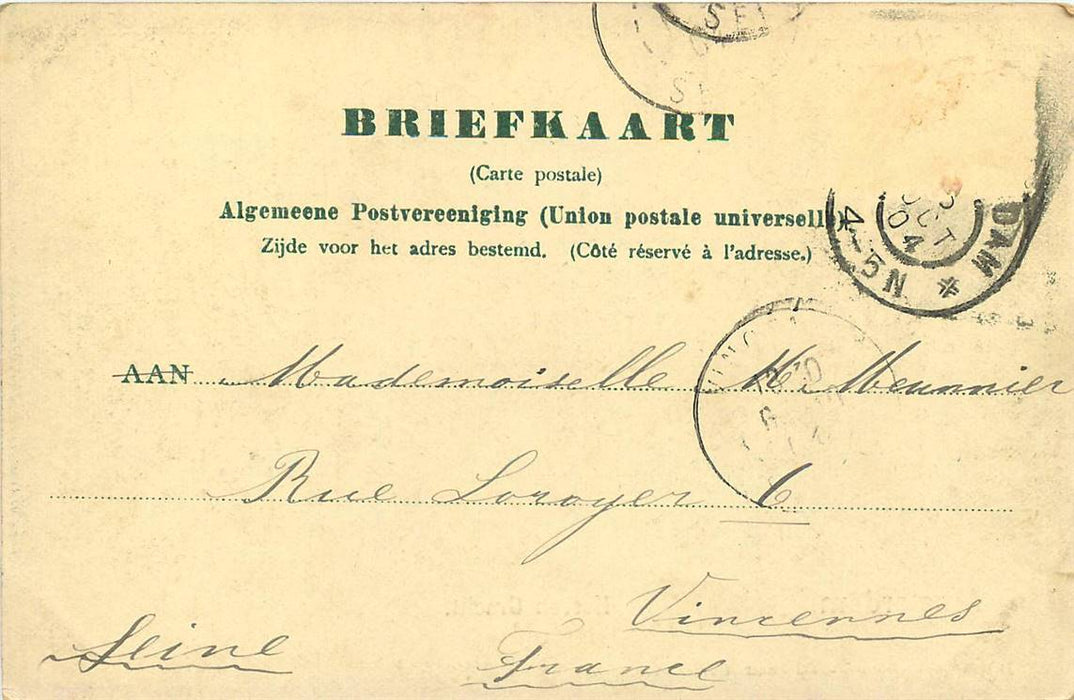 BRIEFKAART
(Carte postale)
Algemeene Postvereeniging (Union postale universelle)
Zijde voor het adres bestemd. (Côté réservé à l'adresse.)
DAM * 4-5N
OCT
04
AAN Mademoiselle M. Meunnier
Rue Loroyer 6
Vincennes
Seine France